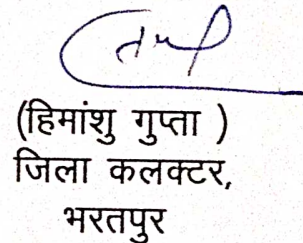 (हिमांशु गुप्ता )
जिला कलक्टर,
भरतपुर